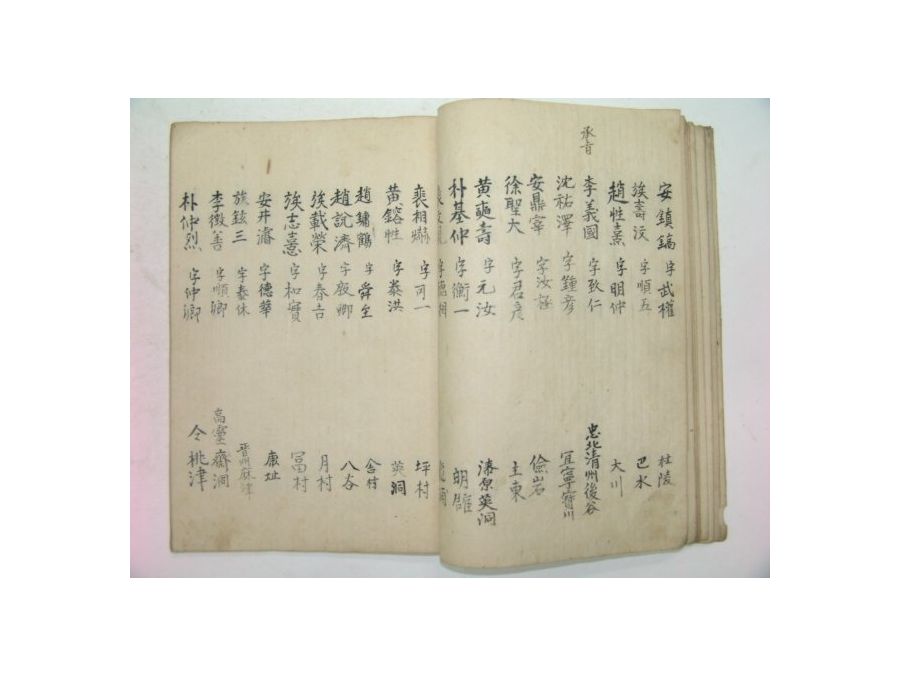 安鎮鎬 字武權 杜陵
壽汶 字順五 巴水
趙性熹 字明仲 大川
承旨
李義國 字致仁 忠北清州後谷
沈祐澤 字鍾彦 宜寧寶川
安鼎宰 字汝極 儉岩
徐聖大 字君彦 土東
黄奭壽 字元汝 漆原英洞
朴基仲 字衡一 明
裵相爀 字可一 坪村
黄鎔性 字泰洪 英洞
趙鏞鶴 字舜全 舍村
趙說濟 字殷卿 八谷
載榮 字春吉 月村
志憙 字和實 冨村
安井濬 字德華 康址
鉉三 字泰休 晋州麻津
李徴善 字順卿 高靈齋洞
朴仲烈 字仲卿 仝桃津